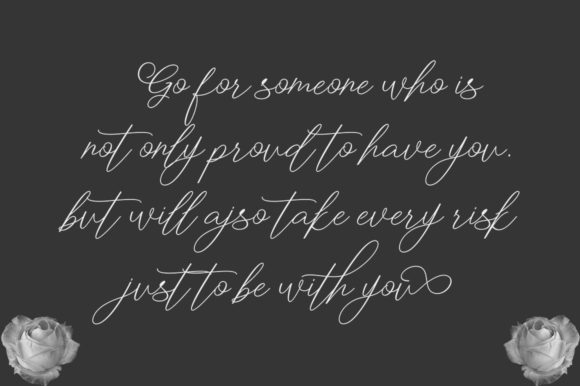 Go for someone who is
not only proud to have you.
but will ajso take every risk
just to be with you